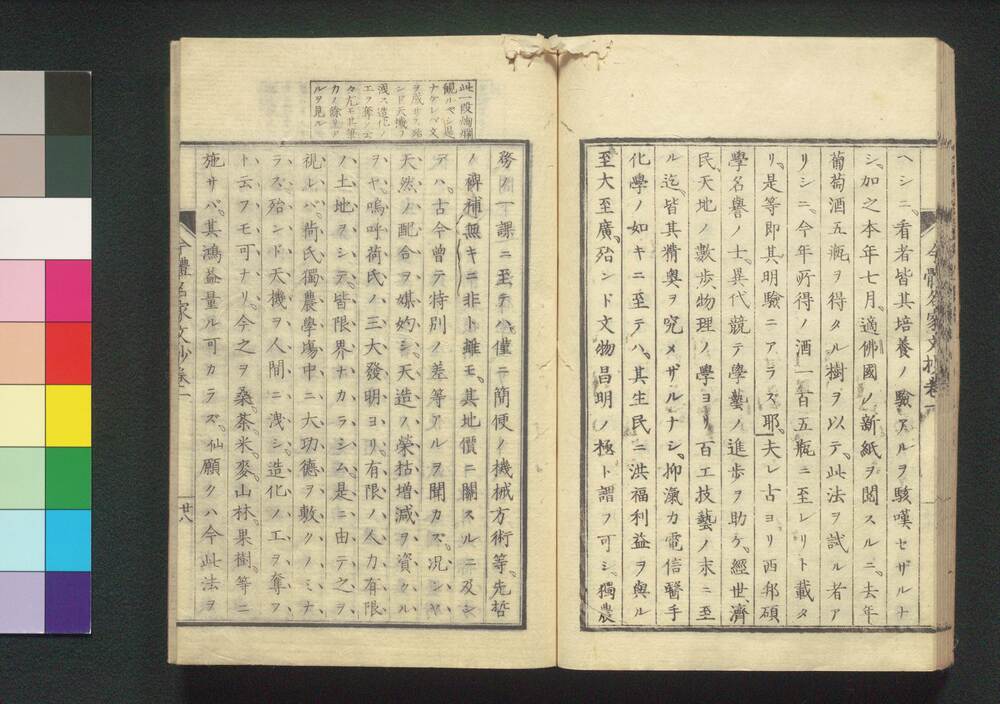 ヘシニ。看者皆其培養ノ驗アルヲ駭嘆セザルナ
シ。加之本年七月。適佛國ノ新紙ヲ閲スルニ。去年
葡萄酒五瓶ヲ得タル樹ヲ以テ。此法ヲ試ル者ア
リシニ。今年所得ノ酒一百五瓶ニ至レリト載タ
リ。是等即其明驗ニアラズ耶。夫レ古ヨリ西邦碩
學名譽ノ士。異代競テ學藝ノ進歩ヲ助ケ。經世濟
民、天地ノ數歩、物理ノ學ヨリ百工技藝ノ末ニ至
ル迄。皆其精奥ヲ究メザルナシ。抑瀛カ電信醫手
化學ノ如キニ至テハ。其生民ニ洪福利益ヲ與ル
至大至廣。殆ンド文物昌明ノ極ト謂フ可シ。獨農
今體名家文抄卷一
務ノ一課ニ至テハ。僅ニ簡便ノ機械方術等。先哲
ノ裨補無キニ非ト雖モ。其地價ニ關スルニ及シ
デハ。古今曾テ特別ノ差等アルヲ聞カズ。况シヤ
天然ノ配合ヲ媒妁シ。天造ノ榮枯増減ヲ資クル
ヲヤ。嗚呼荷氏ノ三大發明ヨリ。有限ノ人力有限
ノ土地ヲシテ。皆限界ナカラシム。是ニ由テ之ヲ
視レバ。荷氏獨農學塲中ニ大功德ヲ敷クノミナ
ラズ。殆ンド天機ヲ人間ニ洩シ。造化ノ工ヲ奪フ
ト云フモ可ナリ。今之ヲ桑茶米麥山林果樹等ニ
施サバ。其鴻益量ル可カラズ。仙願クハ今此法ヲ
今體名家文抄卷一
廿八